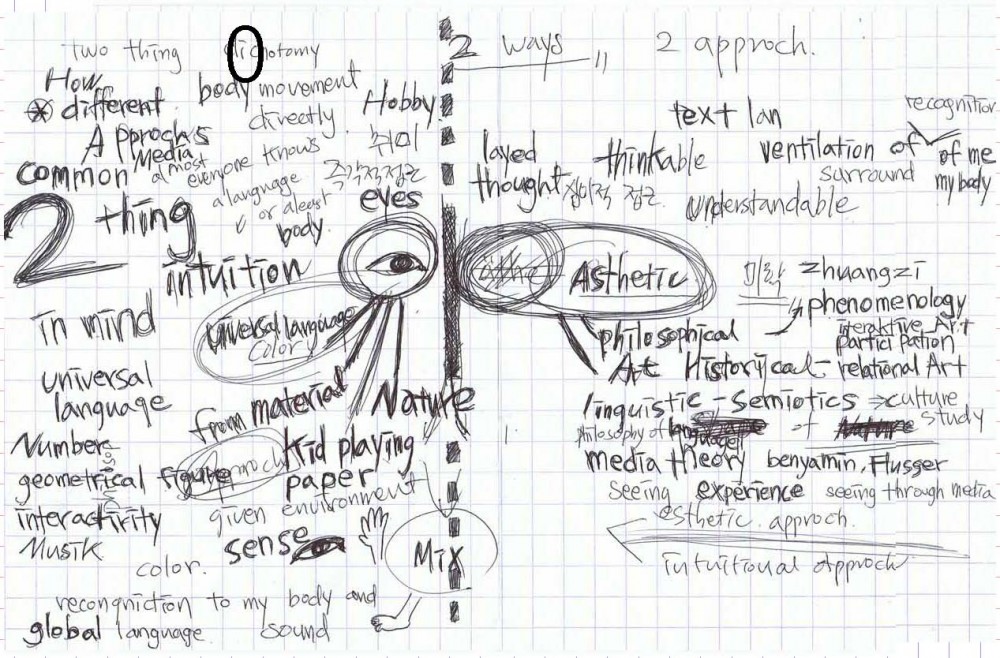 two thing dichotomy
How
different
Approchs
Media
common
body movement
directly
almost
everyone knows
a language
or aleast
body.
Hobby
취미
eyes
2 thing
intuition
in mind
universal language
color
universal
language
from material
Nature
Number
geometrical figure
interactirity
Musik
color.
Kid playing
paper
given environment
sense
Mix
recongniction to my body and
global language sound
2 ways
2 approch.
text lan
recognition
layed
thought
thinkable
ventilation of
surround
of me
my body
understandable
Asthetic
미학
zhuangzi
phenomenology
philosophical
interaktive Art
Partici pation
Art Historycal - relational Art
linguistic - Semiotics ⇒ culture
study
philosophy of language of Nature
media theory benyamin, Flusser
seeing experience seeing through media
esthetic approch.
intuitional approch